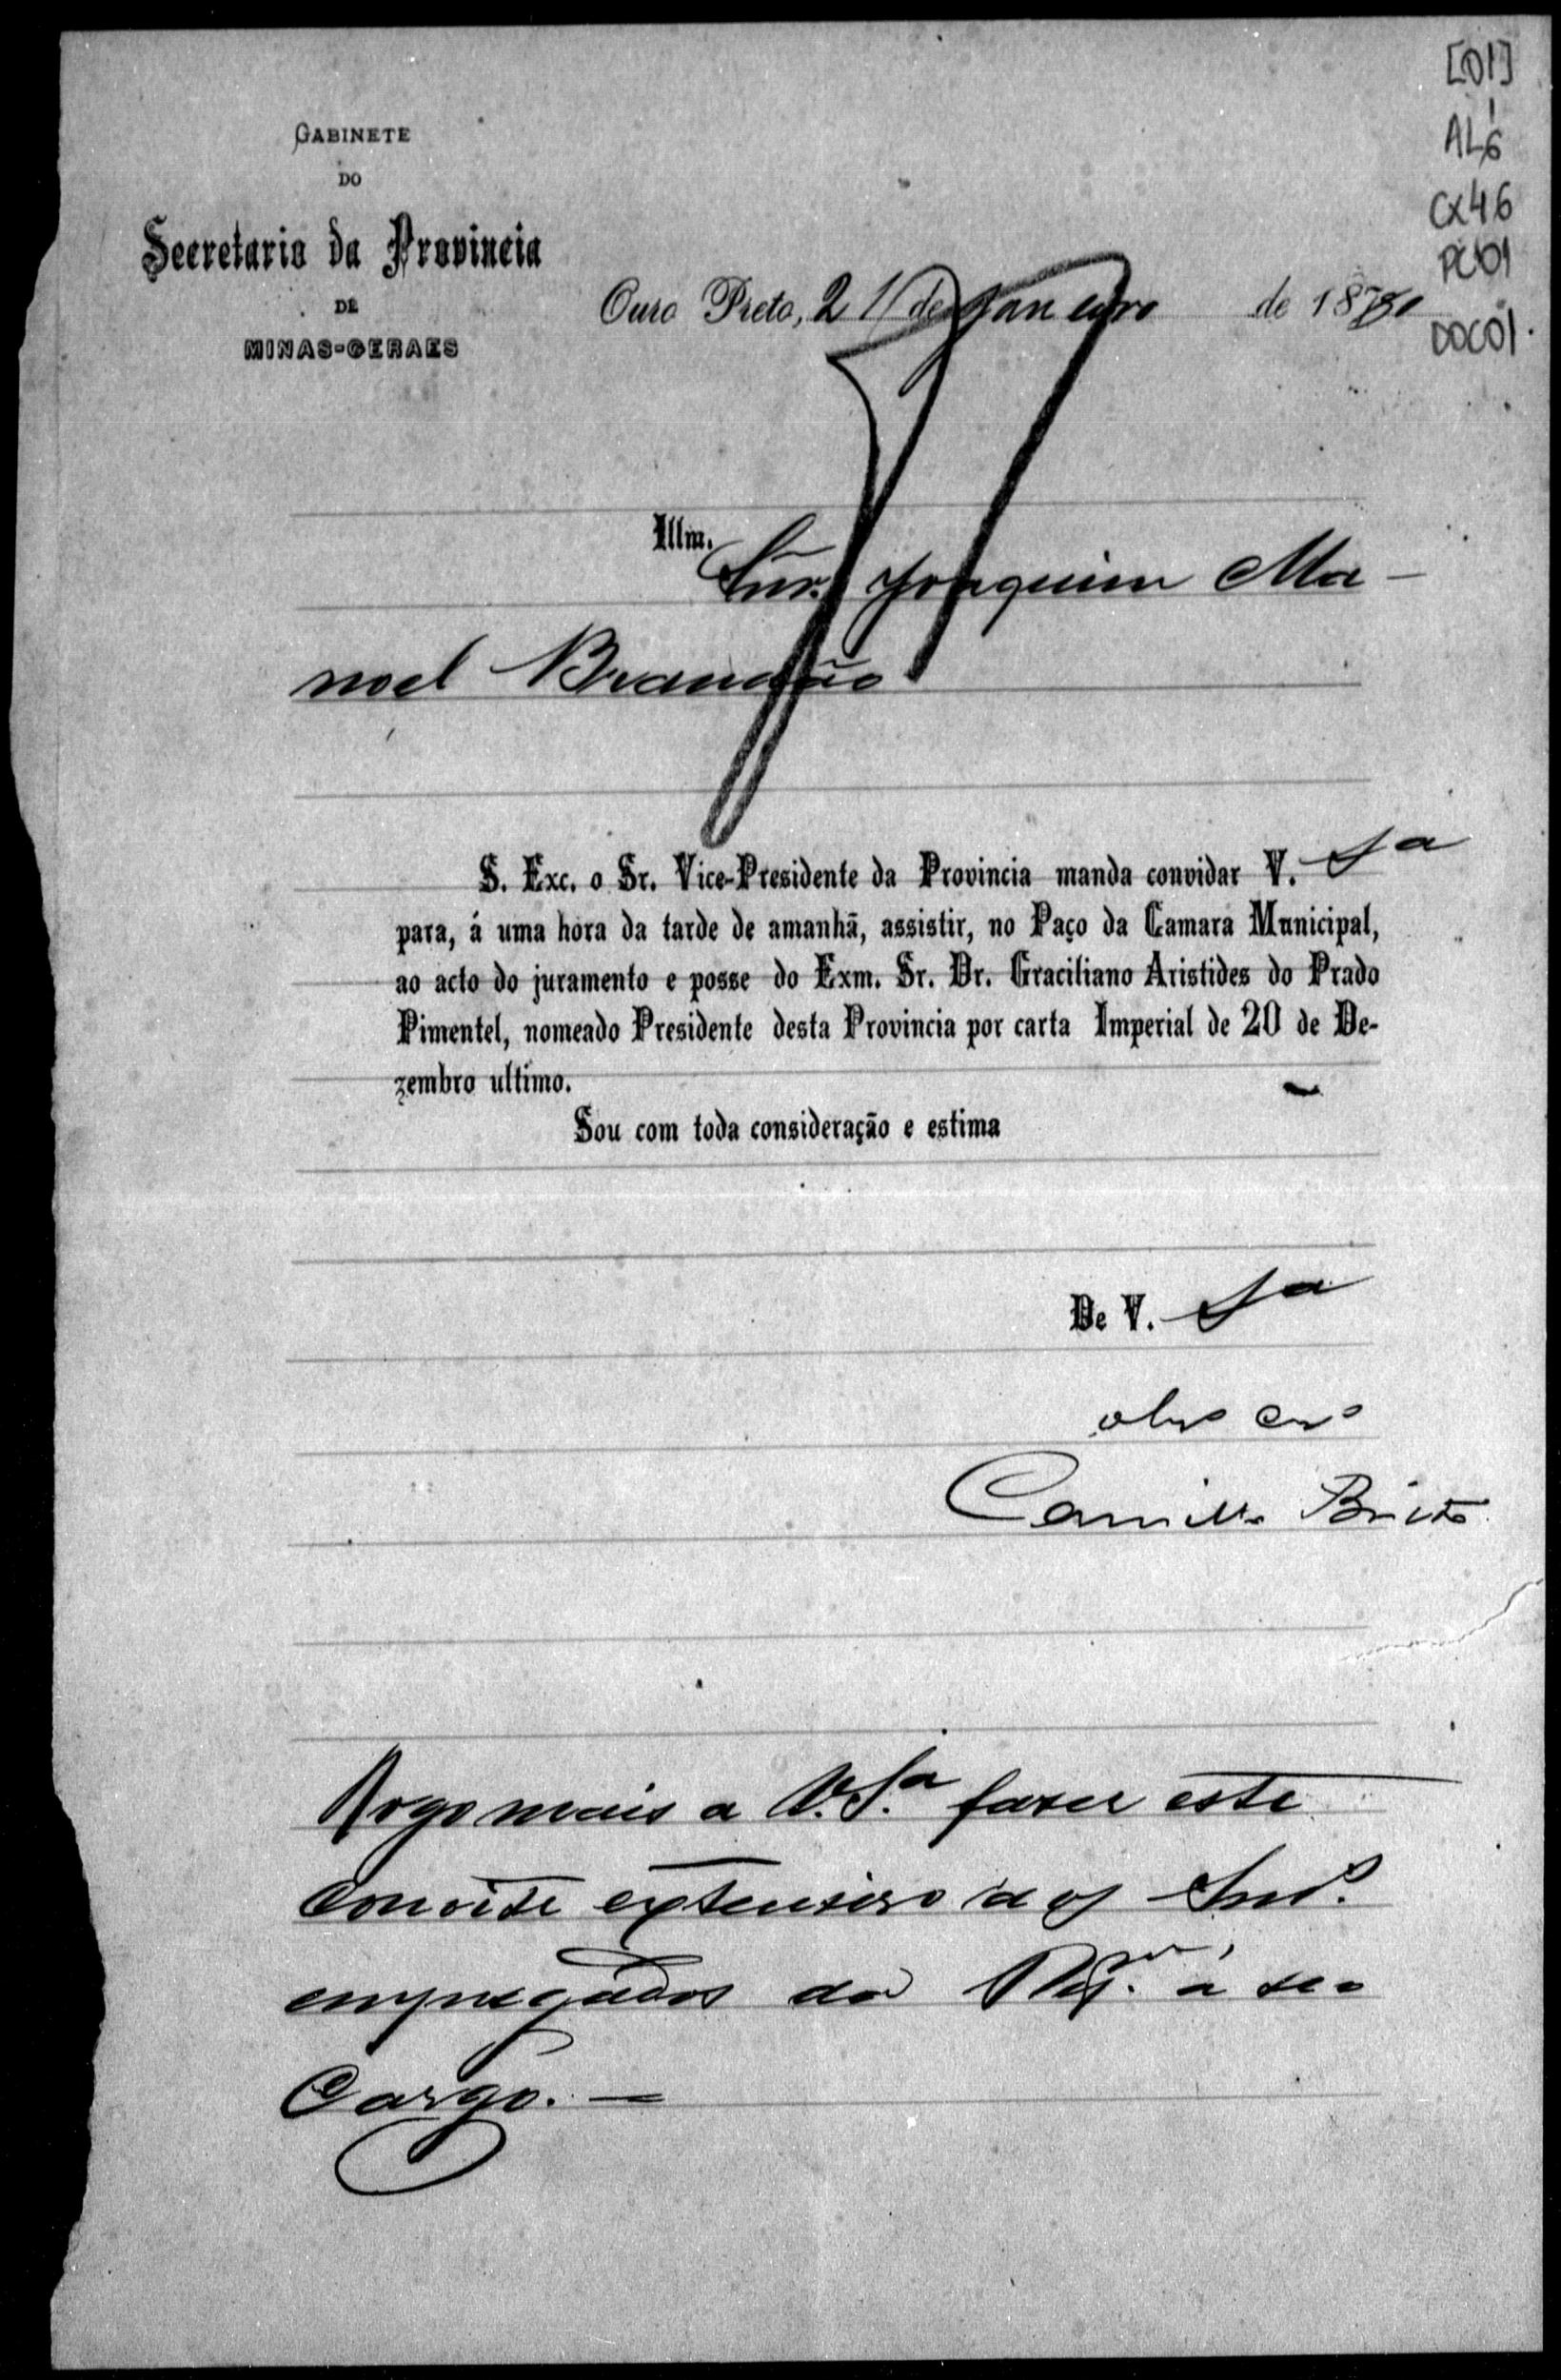 [01]
AL6
CX46
PC01
DOC01.
GABINETE
DO
Secretario da Provincia
DE
MINAS-GERAES
Ouro Preto, 21 de Janeiro de 1880
Illm.
Snr. Joaquim Ma-
noel Brandão
S. Exc. o Sr. Vice-Presidente da Provincia manda convidar V. Sa
para, á uma hora da tarde de amanhã, assistir, no Paço da Camara Municipal,
ao acto do juramento e posse do Exm. Sr. Dr. Graciliano Aristides do Prado
Pimentel, nomeado Presidente desta Provincia por carta Imperial de 20 de De-
zembro ultimo.
Sou com toda consideração e estima
De V. Sa
obro cro
Camillo Britto
Rogo mais a V. S.a fazer este
convite extensivo aos Snrs.
empregados da á seo
Cargo. —